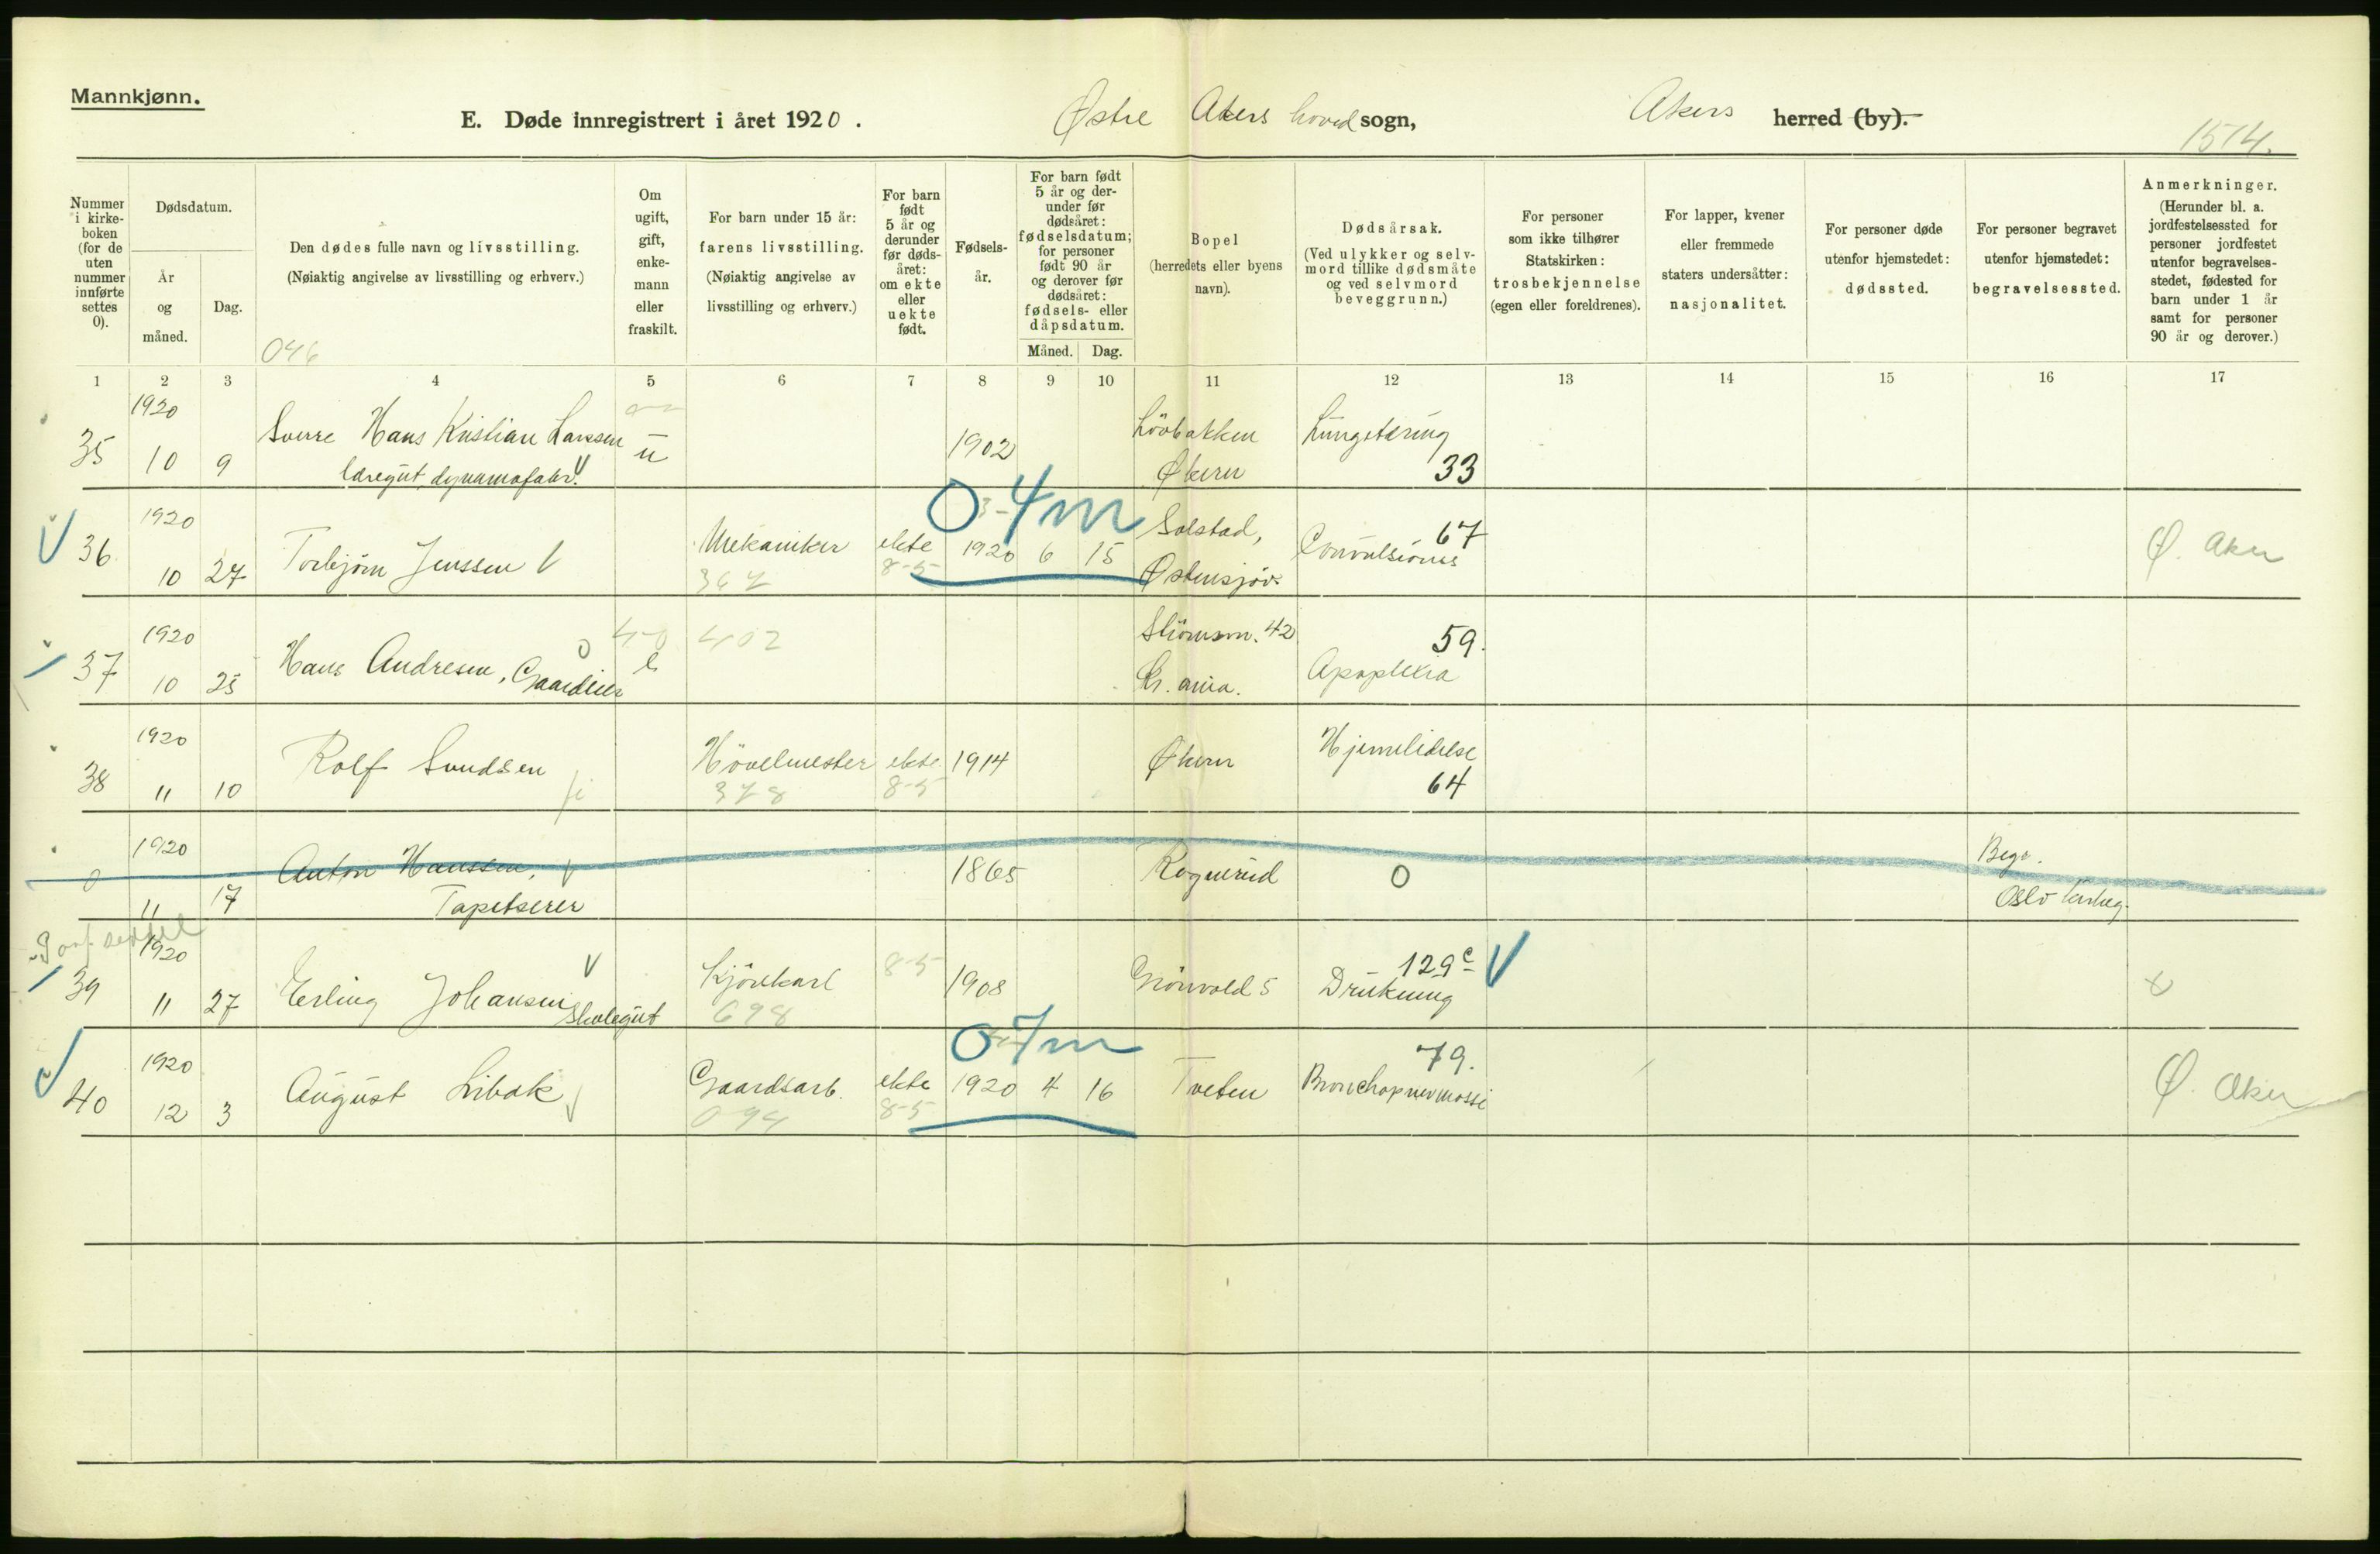 Mannkjønn.
E. Døde innregistrert i året 1920. Østre Akers hoved sogn, Akers herred (by).
1514.
Nummer i kirkeboken (for de uten nummer innførte settes 0).
Dødsdatum.
År og måned.
Dag.
Den dødes fulle navn og livsstilling.
(Nøiaktig angivelse av livsstilling og erhverv.)
046
Om ugift, gift, enkemann eller fraskilt.
For barn under 15 år: farens livsstilling.
(Nøiaktig angivelse av livsstilling og erhverv.)
For barn født 5 år og derunder før dødsåret: om ekte eller uekte født.
Fødselsår.
For barn født 5 år og derunder før dødsåret: fødselsdatum; for personer født 90 år og derover før dødsåret: fødsels- eller dåpsdatum.
Måned. Dag.
Bopel
(herredets eller byens navn).
Dødsårsak.
(Ved ulykker og selvmord tillike dødsmåte og ved selvmord beveggrunn.)
For personer som ikke tilhører Statskirken: trosbekjennelse (egen eller foreldrenes).
For lapper, kvener eller fremmede staters undersåtter: nasjonalitet.
For personer døde utenfor hjemstedet: dødssted.
For personer begravet utenfor hjemstedet: begravelsessted.
Anmerkninger.
(Herunder bl. a. jordfestelsessted for personer jordfestet utenfor begravelsesstedet, fødested for barn under 1 år samt for personer 90 år og derover.)
1 2 3 4 5 6 7 8 9 10 11 12 13 14 15 16 17
35 1920 10 9 Sverre Hans Kristian Larssen u 1902 Lövbakken Lungetæring
læregut dynamofabr. Økern 33
0 4m
36 1920 10 27 Torbjörn Jenssen Mekaniker ekte 1920 6 15 Solstad, 67 Convulsiones Ø. Aker
367 8-5 Østensjöv.
37 1920 10 25 Hans Andresen, Gaardeier e 402 Strömsvn. 42 59.
Kr.ania. Apoplexia
38 1920 11 10 Rolf Svendsen Hövelmester ekte 1914 Økern Hjernelidelse
378 8-5 64
0 1920 11 17 Anton Hanssen, 1865 Rognerud 0 Begr.
Tapetserer Oslo
39 1920 11 27 Erling Johansen Skolegut Kjörekarl 8-5 1908 Grönvold 5 129c Drukning
698
0 7m
40 1920 12 3 August Libak Gaardsarb. ekte 1920 4 16 Tveten 79. Ø. Aker
094 8-5